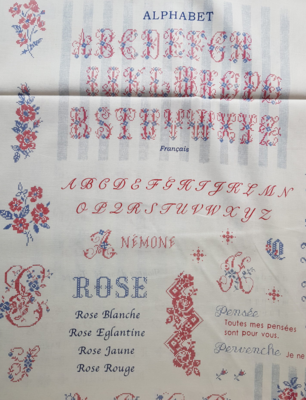 ALPHABET
ABCDEFGH
IJKLMNOPQ
RSTUVWXYZ
Français
ABCDEFGHIJKLMN
OPQRSTUVWXYZ
ANÉMONE
ROSE
Rose Blanche
Rose Eglantine
Rose Jaune
Rose Rouge
Pensée
Toutes mes pensées
sont pour vous.
Pervenche Je ne